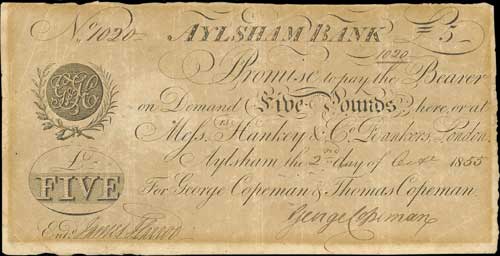 No. 1020 AYLSHAM BANK £5
1020
I Promise to pay the Bearer
on Demand Five Pounds, here, or at
Messrs. Hankey & Co. Bankers, London.
Aylsham the 2nd day of 1855
For George Copeman & Thomas Copeman
£
FIVE
George Copeman
Entd. James